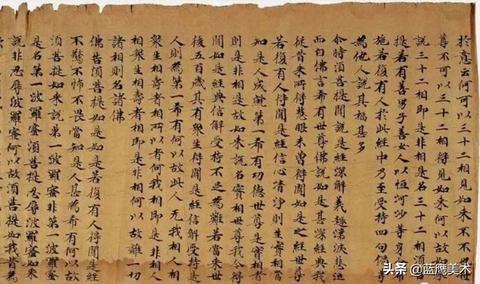 於意云何可以三十二相見如來不不也世
尊不可以三十二相得見如來何以故如來
說三十二相即是非相是名三十二相須菩
提若有善男子善女人以恒河沙等身命布
施若復有人於此經中乃至受持四句偈等
為他人說其福甚多
尒時須菩提聞說是經深解義趣涕淚悲泣
而白佛言希有世尊佛說如是甚深經典我
從昔來所得慧眼未曾得聞如是之經世尊
若復有人得聞是經信心清淨則生實相當
知是人成就第一希有功德世尊是實相者
則是非相是故如來說名實相世尊我今得
聞如是經典信解受持不足為難若當來世
後五百歲其有眾生得聞是經信解受持是
人則為第一希有何以故此人无我相人相
眾生相壽者相所以者何我相即是非相人
相眾生相壽者相即是非相何以故離一切
諸相則名諸佛
佛告須菩提如是如是若復有人得聞是經
不驚不怖不畏當知是人甚為希有何以故
須菩提如來說第一波羅蜜非第一波羅蜜
是名第一波羅蜜須菩提忍辱波羅蜜如來
說非忍辱波羅蜜何以故須菩提如我昔為
头条 @蓝鹰美术